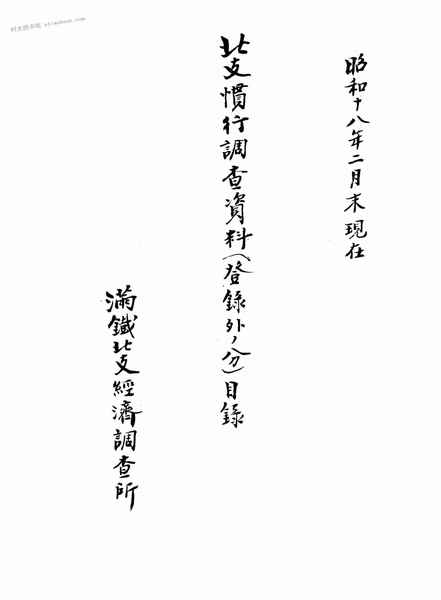 昭和十八年二月末現在
北支慣行調査資料(登録外ノ分)目録
満鐵北支經濟調査所